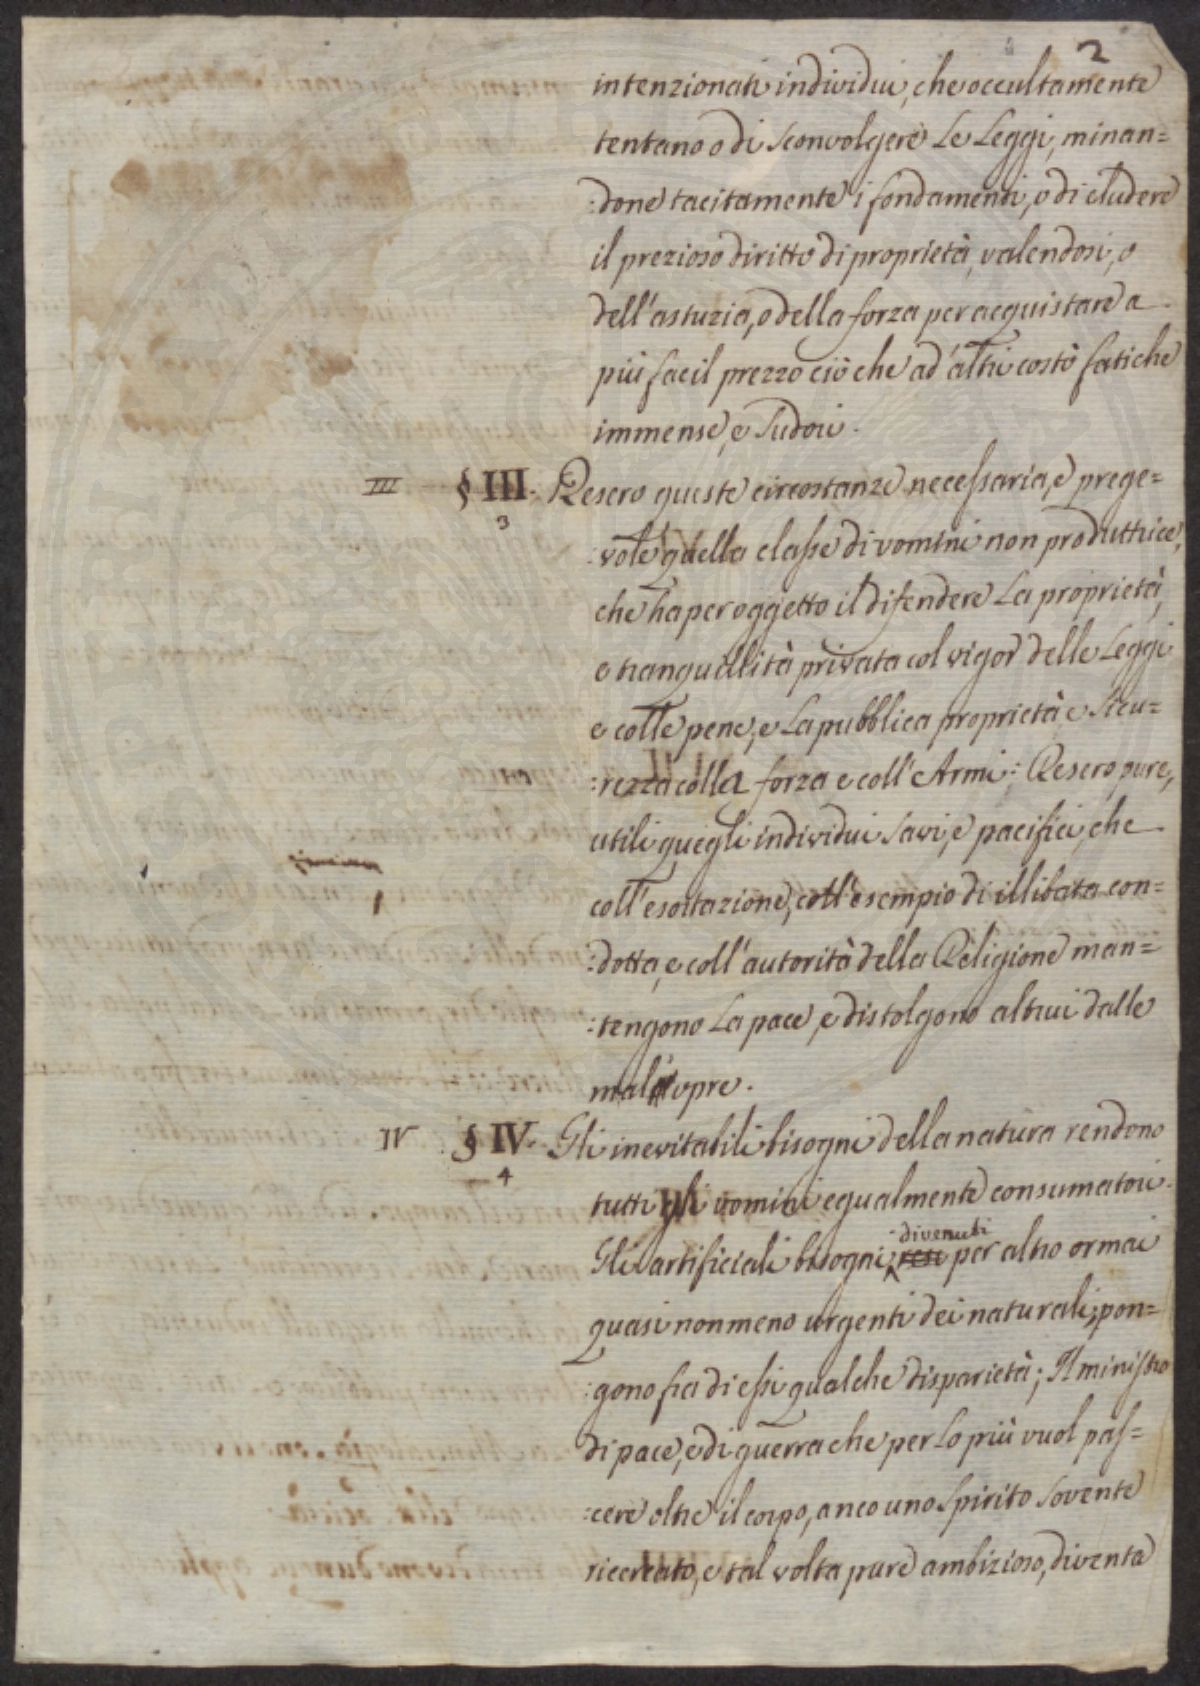 2
intenzionati individui, che occultamente
tentano o di sconvolgere le Leggi, minan=
:done tacitamente i fondamenti, o di eludere
il prezioso diritto di proprietà, valendosi, o
dell'astuzia, o della forza per acquistare a
più facil prezzo ciò che ad'altri costò fatiche
immense, e sudori.
III § III. Resero queste circostanze necessaria, e prege=
3
:vole quella classe di uomini non produttrice,
che ha per oggetto il difendere la proprietà,
e tranquillità privata col vigor delle Leggi
e colle pene, e la pubblica proprietà e sicu=
:rezza colla forza e coll'Armi: Resero pure,
utili quegli individui savi, e pacifici, che
coll'esortazione, coll'esempio di illibata con=
:dotta, e coll'autorità della Religione man=
:tengono la pace, e distolgono altrui dalle
mal opre.
IV § IV. Gli inevitabili bisogni della natura rendono
4
tutti gli uomini egualmente consumatori.
divenuti
Gli artificiali bisogni, resi per altro ormai
quasi non meno urgenti dei naturali, pon=
:gono fra di essi qualche disparietà; Il ministro
di pace, e di guerra che per lo più vuol pas=
:cere oltre il corpo, anco uno spirito sovente
ricercato, e tal volta pure ambizioso, diventa